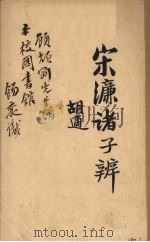 宋濂诸子辨
胡適
顧頡剛先生
本校圖書館